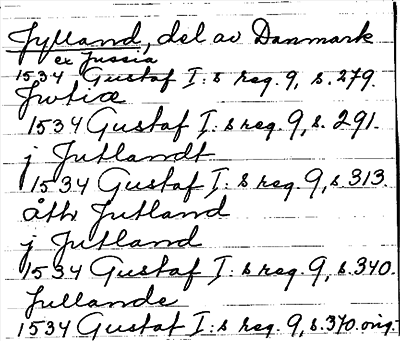 Jylland, del av Danmark
ex Jussia
1534 Gustaf I:s reg. 9, s. 279.
Jutiæ
1534 Gustaf I:s reg. 9, s. 291.
j Jutlandt
1534 Gustaf I:s reg. 9, s. 313.
åthr Jutland
j Jutland
1534 Gustaf I:s reg. 9, s. 340.
Jullande
1534 Gustaf I:s reg. 9, s. 370. orig.